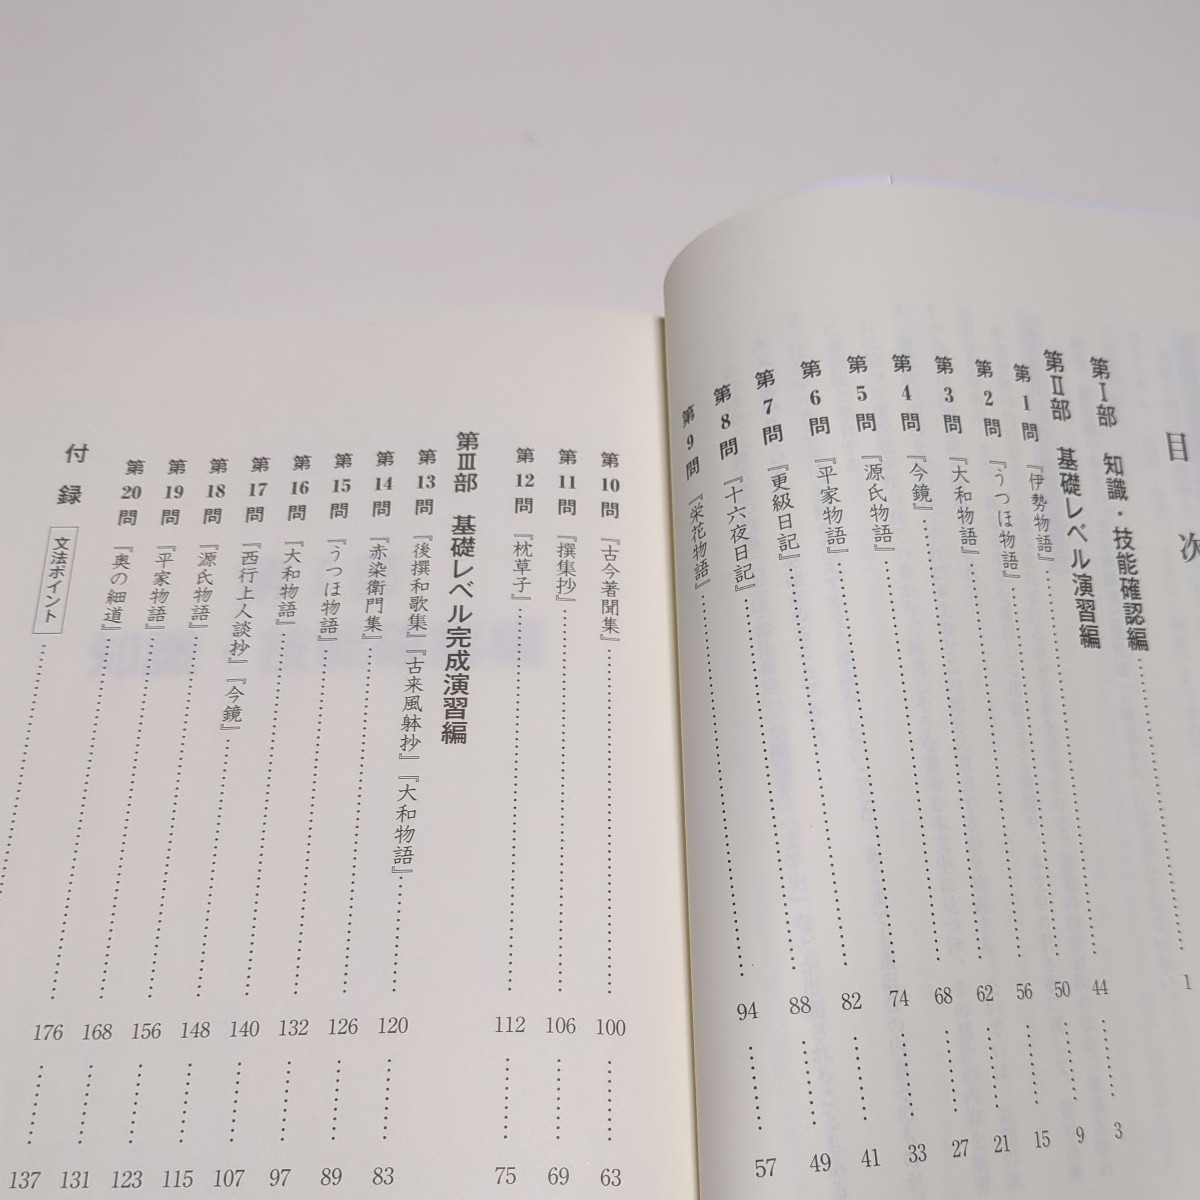 目次
第Ⅰ部 知識・技能確認編……1
第Ⅱ部 基礎レベル演習編
第1問 『伊勢物語』……44……3
第2問 『うつほ物語』……50……9
第3問 『大和物語』……56……15
第4問 『今鏡』……62……21
第5問 『源氏物語』……68……27
第6問 『平家物語』……74……33
第7問 『更級日記』……82……41
第8問 『十六夜日記』……88……49
第9問 『栄花物語』……94……57
第10問 『古今著聞集』……100……63
第11問 『撰集抄』……106……69
第12問 『枕草子』……112……75
第Ⅲ部 基礎レベル完成演習編
第13問 『後撰和歌集』『古来風躰抄』『大和物語』……120……83
第14問 『赤染衛門集』……126……89
第15問 『うつほ物語』……132……97
第16問 『大和物語』……140……107
第17問 『西行上人談抄』『今鏡』……148……115
第18問 『源氏物語』……156……123
第19問 『平家物語』……168……131
第20問 『奥の細道』……176……137
付録 文法ポイント……